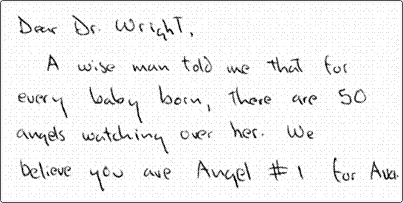 Dear Dr. Wright,
A wise man told me that for
every baby born, there are 50
angels watching over her. We
believe you are Angel #1 for Ava.